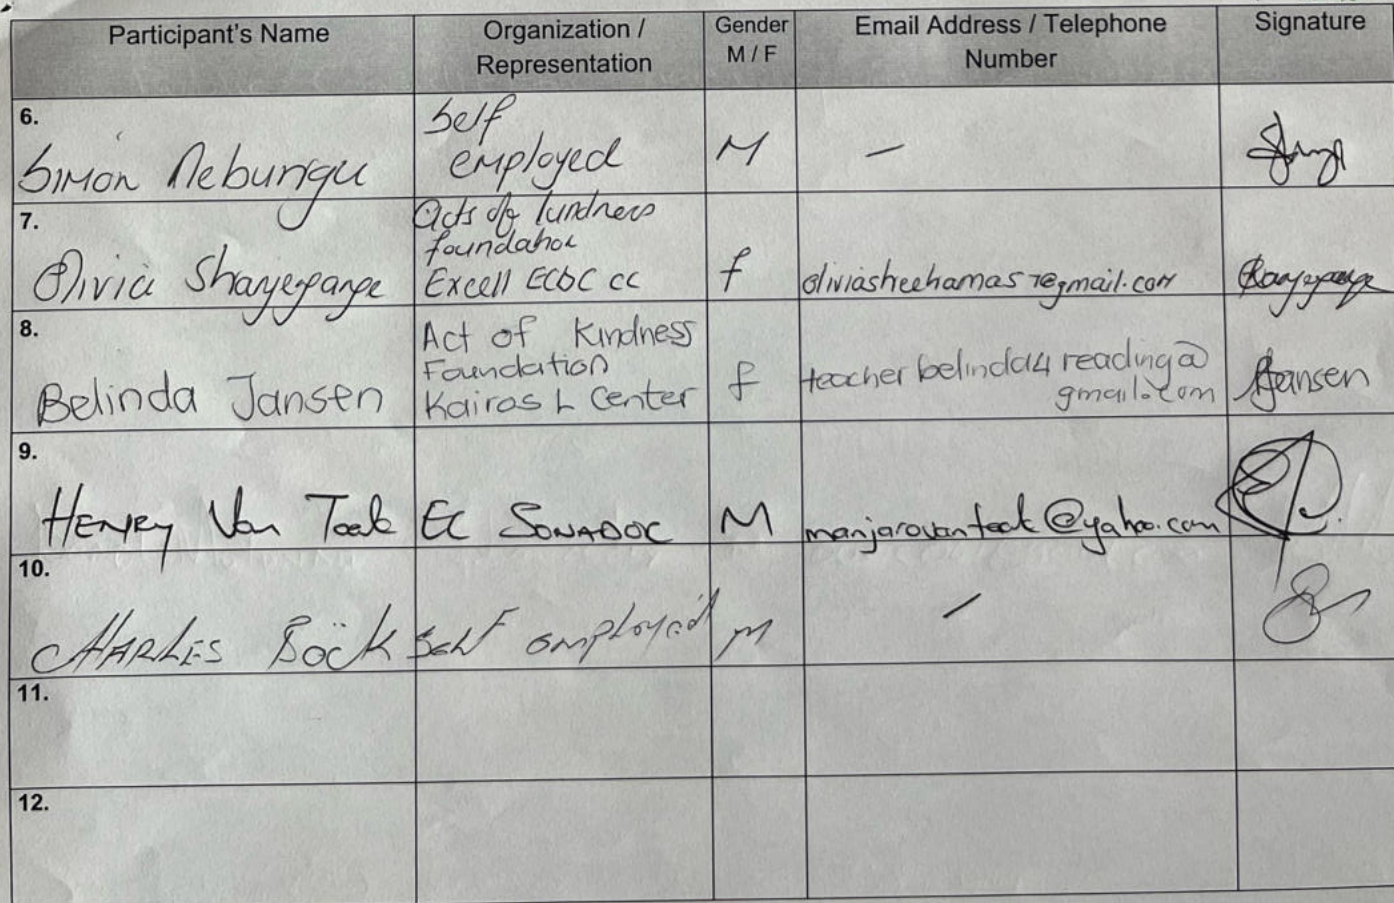 Participant's Name Organization / Representation Gender M / F Email Address / Telephone Number Signature
6. Simon Nebungu Self employed M —
7. Olivia Shayepange acts of kindness foundation Excell ECDC cc f
8. Belinda Jansen Act of Kindness Foundation Kairos L Center f teacherbelinda4reading@gmail.com Jansen
9. HENRY Van Teek EC SONADOC M @yahoo.com
10. CHARLES Böck Self employed M —
11.
12.